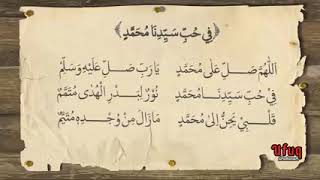 ﴿فِي حُبِّ سَيِّدِنَا مُحَمَّدٍ﴾
اَللّٰهُمَّ صَلِّ عَلٰى مُحَمَّدٍ يَا رَبِّ صَلِّ عَلَيْهِ وَسَلِّمْ
فِيْ حُبِّ سَيِّدِنَا مُحَمَّدٍ نُوْرٌ لِبَدْرِ الْهُدٰى مُتَمَّمٌ
قَلْبِيْ يَحِنُّ اِلٰى مُحَمَّدٍ مَازَالَ مِنْ وَجْدِهِ مُتَيَّمٌ
Ufuq